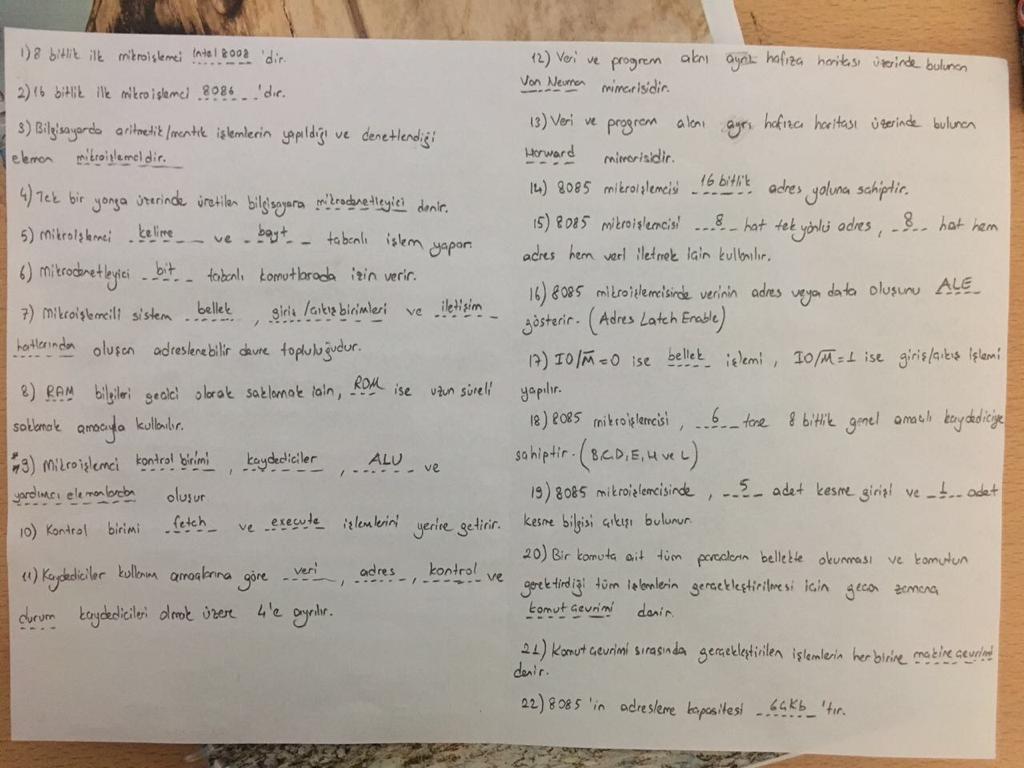 1) 8 bitlik ilk mikroişlemci Intel 8008 'dir.
2) 16 bitlik ilk mikroişlemci 8086 'dır.
3) Bilgisayarda aritmetik/mantık işlemlerin yapıldığı ve denetlendiği
eleman mikroişlemcidir.
4) Tek bir yonga üzerinde üretilen bilgisayara mikrodenetleyici denir.
5) Mikroişlemci kelime ve bayt tabanlı işlem yapar.
6) Mikrodenetleyici bit tabanlı komutlarada izin verir.
7) Mikroişlemcili sistem bellek, giriş/çıkış birimleri ve iletişim
hatlarından oluşan adreslenebilir devre topluluğudur.
8) RAM bilgileri geçici olarak saklamak için, ROM ise uzun süreli
saklamak amacıyla kullanılır.
* 9) Mikroişlemci kontrol birimi, kaydediciler, ALU ve
yardımcı elemanlardan oluşur.
10) Kontrol birimi fetch ve execute işlemlerini yerine getirir.
11) Kaydediciler kullanım amaçlarına göre veri, adres, kontrol ve
durum kaydedicileri olmak üzere 4'e ayrılır.
12) Veri ve program alanı aynı hafıza haritası üzerinde bulunan
Von Neuman mimarisidir.
13) Veri ve program alanı ayrı hafıza haritası üzerinde bulunan
Harward mimarisidir.
14) 8085 mikroişlemcisi 16 bitlik adres yoluna sahiptir.
15) 8085 mikroişlemcisi 8 hat tek yönlü adres, 8 hat hem
adres hem veri iletmek için kullanılır.
16) 8085 mikroişlemcisinde verinin adres veya data oluşunu ALE
gösterir. (Adres Latch Enable)
17) IO/M̅=0 ise bellek işlemi, IO/M̅=1 ise giriş/çıkış işlemi
yapılır.
18) 8085 mikroişlemcisi, 6 tane 8 bitlik genel amaçlı kaydediciye
sahiptir. (B,C,D,E,H ve L)
19) 8085 mikroişlemcisinde, 5 adet kesme girişi ve 1 adet
kesme bilgisi çıkışı bulunur.
20) Bir komuta ait tüm parçaların bellekte okunması ve komutun
gerektirdiği tüm işlemlerin gerçekleştirilmesi için geçen zamana
komut çevrimi denir.
21) Komut çevrimi sırasında gerçekleştirilen işlemlerin her birine makine çevrimi
denir.
22) 8085 'in adresleme kapasitesi 64Kb 'tır.